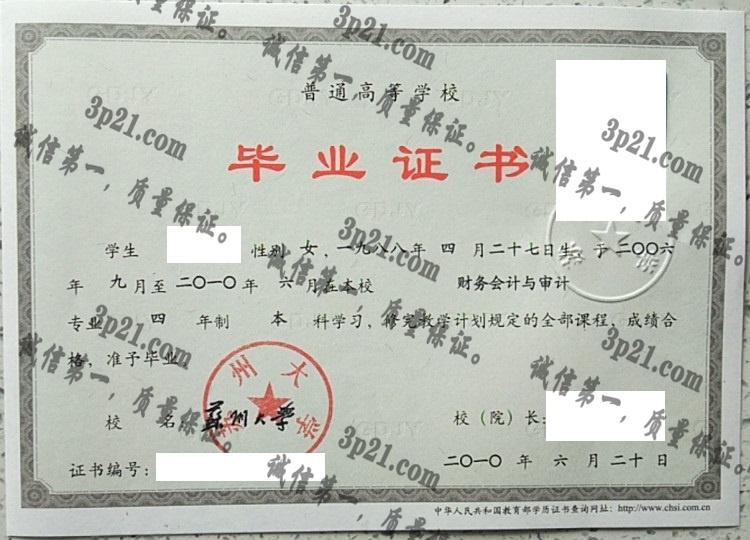 普通高等学校
毕业证书
学生 性别 女，一九八八年 四 月二十七日生，于 二〇〇六
年 九 月至 二〇一〇 年 六 月在本校 财务会计与审计
专业 四 年制 本 科学习，修完教学计划规定的全部课程，成绩合
格，准予毕业。
校 名 蘇州大學
校（院）长：
证书编号：
二〇一〇 年 六 月 二十 日
中华人民共和国教育部学历证书查询网址：http://www.chsi.com.cn
3p21.com
诚信第一，质量保证。
3p21.com
诚信第一，质量保证。
3p21.com
诚信第一，质量保证。
3p21.com
诚信第一，质量保证。
3p21.com
诚信第一，质量保证。
3p21.com
诚信第一，质量保证。
3p21.com
诚信第一，质量保证。
3p21.com
诚信第一，质量保证。